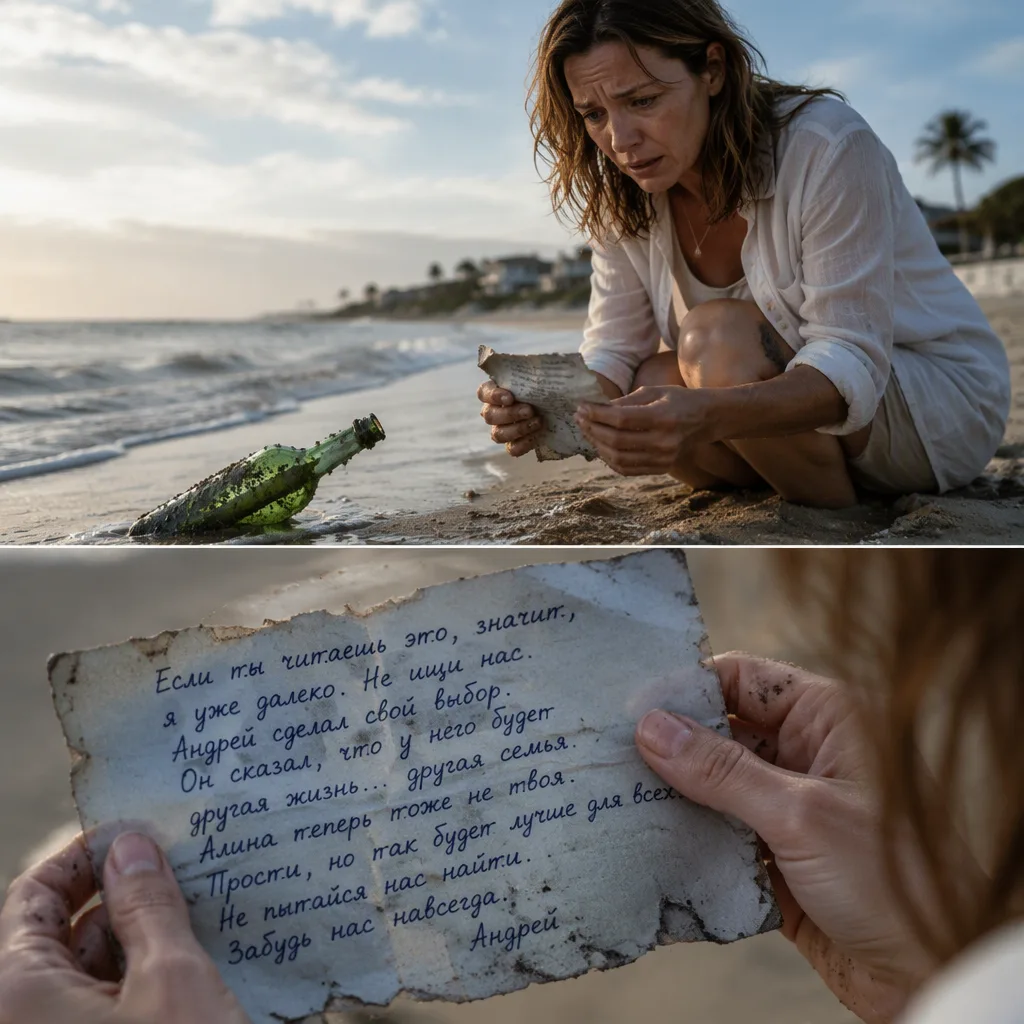 Если ты читаешь это, значит,
я уже далеко. Не ищи нас.
Андрей сделал свой выбор.
Он сказал, что у него будет
другая жизнь... другая семья.
Алина теперь тоже не твоя.
Прости, но так будет лучше для всех.
Не пытайся нас найти.
Забудь нас навсегда.
Андрей